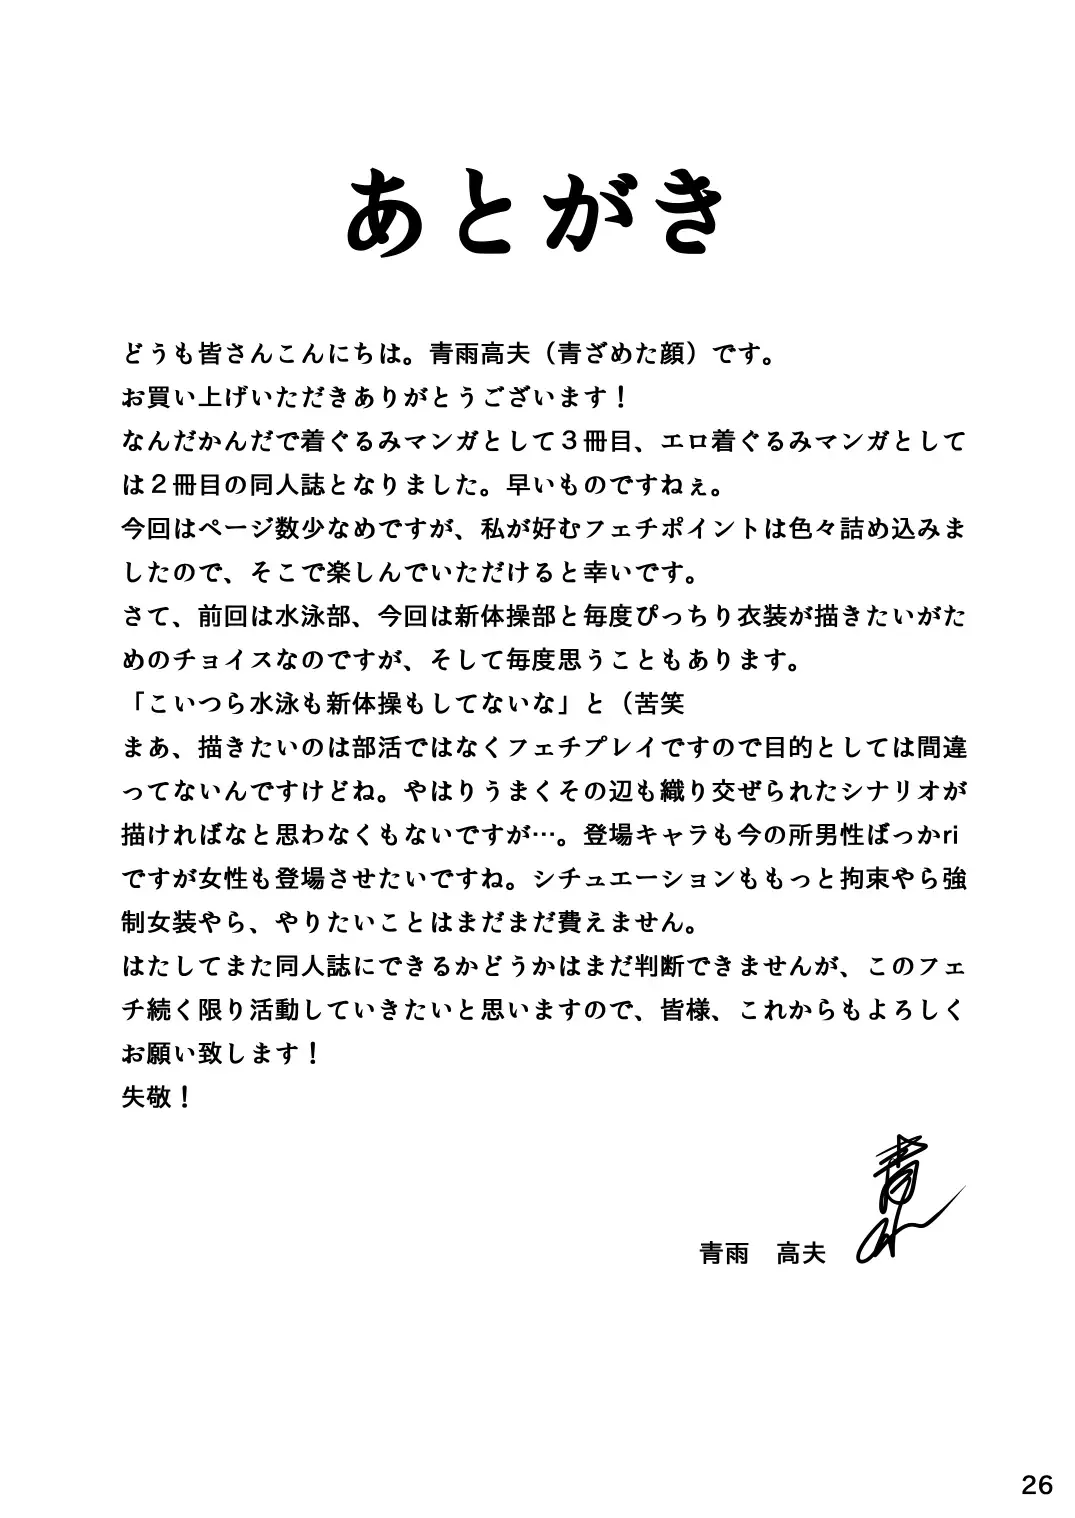 あとがき
どうも皆さんこんにちは。青雨高夫（青ざめた顔）です。
お買い上げいただきありがとうございます！
なんだかんだで着ぐるみマンガとして３冊目、エロ着ぐるみマンガとして
は２冊目の同人誌となりました。早いものですねぇ。
今回はページ数少なめですが、私が好むフェチポイントは色々詰め込みま
したので、そこで楽しんでいただけると幸いです。
さて、前回は水泳部、今回は新体操部と毎度ぴっちり衣装が描きたいがた
めのチョイスなのですが、そして毎度思うこともあります。
「こいつら水泳も新体操もしてないな」と（苦笑
まあ、描きたいのは部活ではなくフェチプレイですので目的としては間違
ってないんですけどね。やはりうまくその辺も織り交ぜられたシナリオが
描ければなと思わなくもないですが…。登場キャラも今の所男性ばっかri
ですが女性も登場させたいですね。シチュエーションももっと拘束やら強
制女装やら、やりたいことはまだまだ費えません。
はたしてまた同人誌にできるかどうかはまだ判断できませんが、このフェ
チ続く限り活動していきたいと思いますので、皆様、これからもよろしく
お願い致します！
失敬！
青雨　高夫
26